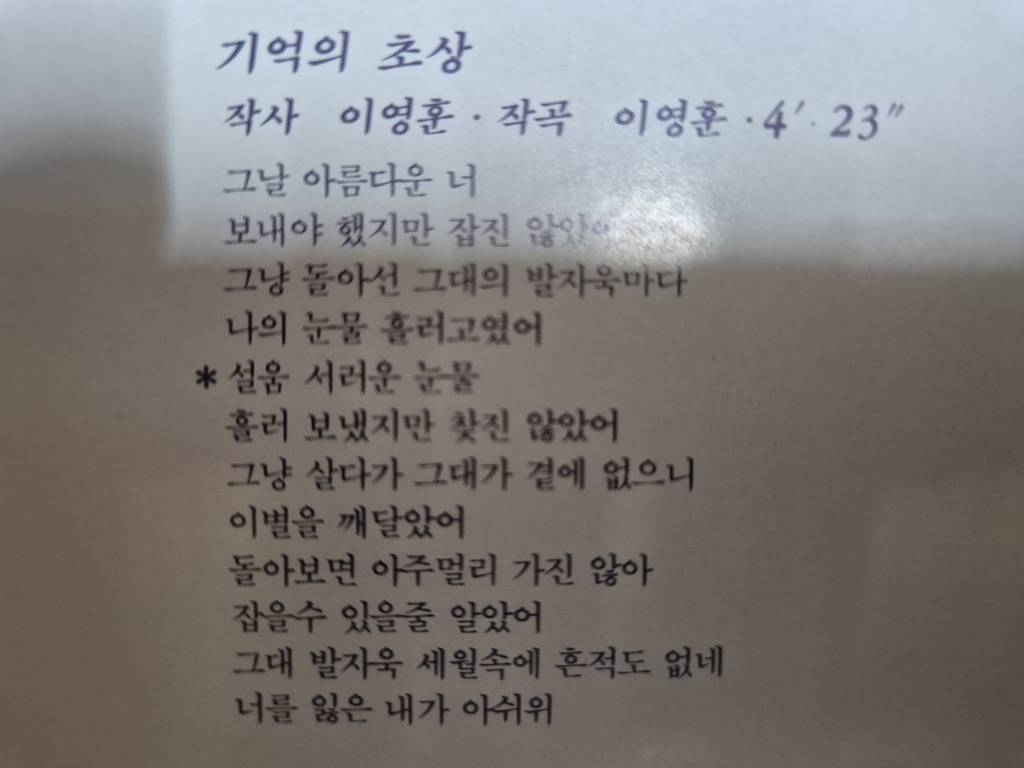 기억의 초상
작사 이영훈 · 작곡 이영훈 · 4′ 23″
그날 아름다운 너
보내야 했지만 잡진 않았어
그냥 돌아선 그대의 발자욱마다
나의 눈물 흘러고였어
* 설움 서러운 눈물
흘러 보냈지만 찾진 않았어
그냥 살다가 그대가 곁에 없으니
이별을 깨달았어
돌아보면 아주멀리 가진 않아
잡을수 있을줄 알았어
그대 발자욱 세월속에 흔적도 없네
너를 잃은 내가 아쉬워